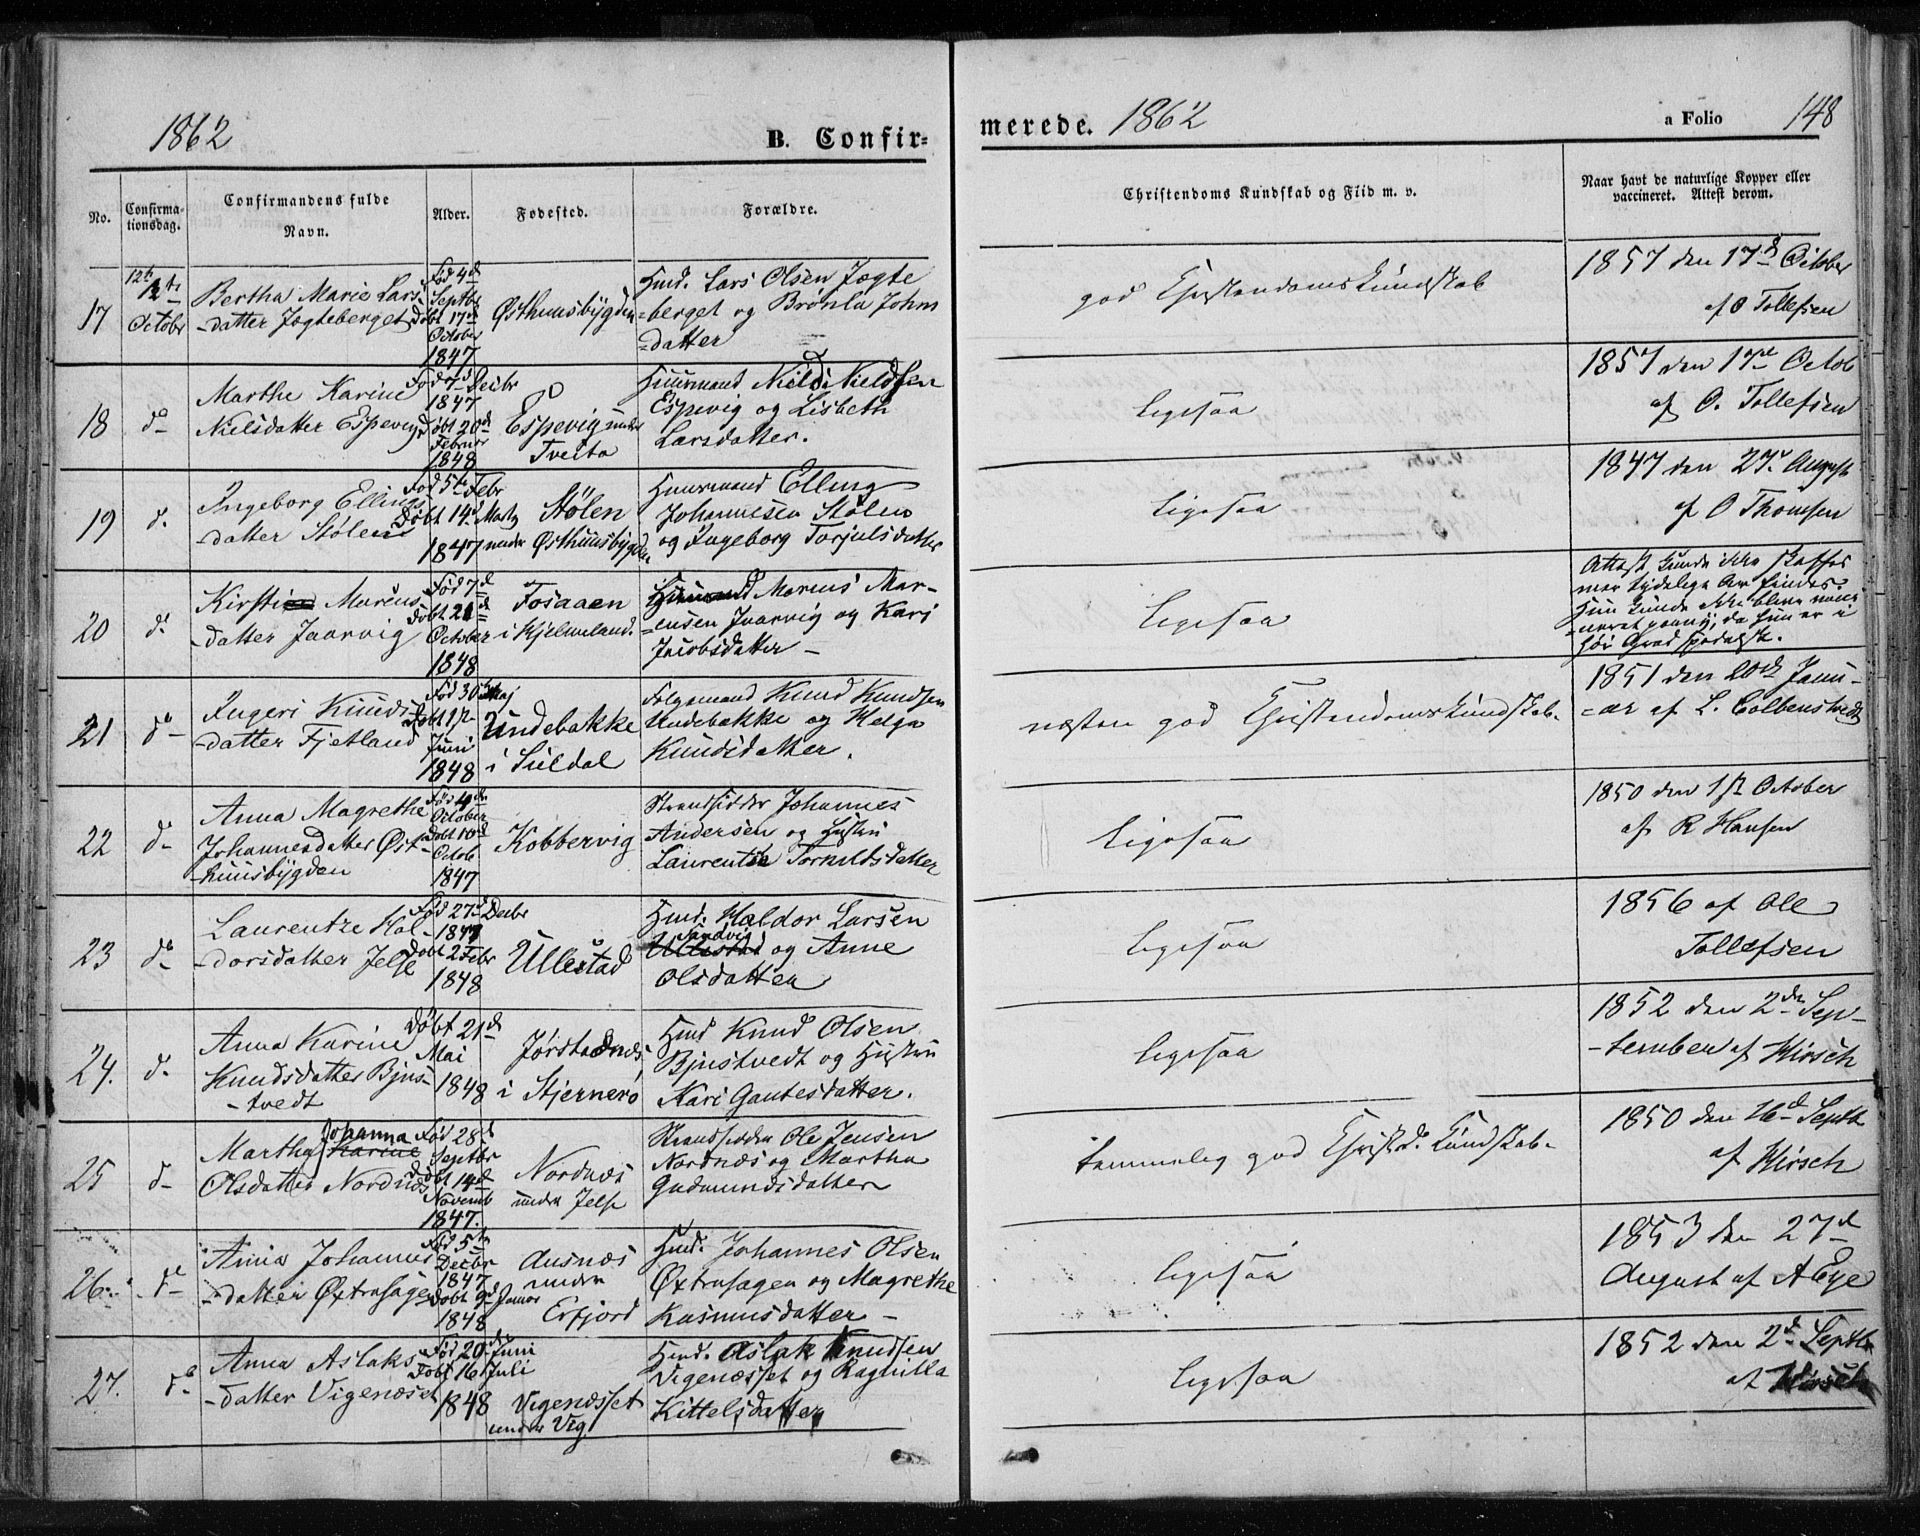 1862
B. Confir-
merede. 1862
a Folio 148
No.
Confirma-
tionsdag.
Confirmandens fulde
Navn.
Alder.
Fødested.
Forældre.
Christendoms Kundskab og Flid m. v.
Naar havt de naturlige Kopper eller
vaccineret. Attest derom.
17
12te
October
Bertha Marie Lars-
-datter Jøgteberget
Fød 4d
Septbr
Døbt 17d
October
1847
Østhuusbygden
Hmd. Lars Olsen Jøgte
-berget og Brønla Johns
-datter
god Christendomskundskab
1857 den 17d October
af O Tollefsen
18
do
Marthe Karine
Nielsdatter Espevig
Fød 7d Decbr
1847
Døbt 20d
Februar
1848
Espevig under
Tveita
Huusmand Niels Nielssen
Espevig og Lisbeth
Larsdatter.
Ligesaa
1857 den 17de Octob
af O. Tollefsen
19
do
Ingeborg Ellings
-datter Stølen
Fød 5te Febr
Døbt 14d Marts
1847
Stølen
under Østhuusbygden
Huusmand Elling
Johannesen Stølen
og Ingeborg Torjulsdatter
Ligesaa
1847 den 27d August
af O Thomsen
20
do
Kirsti Marcus
-datter Jaarvig
Fød 7d
Døbt 21d
October
1848
Fosaaen
i Hjelmeland.
Marcus Mar-
-cusen Jaarvig og Kari
Jacobsdatter -
Ligesaa
Attest kunde ikke skaffes
men tydelige Ar findes
Hun kunde ikke blive vacci
-neret paany, da hun er i
høi Grad spedalsk.
21
do
Ingeri Knuds
-datter Fjetland
Fød 30 Maj
Døbt 1st
Juni
1848
Undebakke
i Suldal
Folgemand Knud Knudsen
Undebakke og Helga
Knudsdatter.
næsten god Christendomskundskab-
1851 den 20de Janu-
-ar af L. Colbenstvedt
22
do
Anna Magrethe
Johannesdatter Øst-
huusbygden
Fød 4de
October
Døbt 10d
Octob
1847
Kobbervig
Strandsidder Johannes
Andersen og Hustru
Laurentse Tornildsdatter
Ligesaa
1850 den 1st October
af R Hansen
23
do
Laurentze Hal-
-dorsdatter Jelse
Fød 27d Decbr
1847
Døbt 2 Febr
1848
Ullestad
Hmd. Haldor Larsen
Sandvig
Ullestad og Anne
Olsdatter
Ligesaa
1856 af Ole
Tollefsen
24.
do
Anna Karine
Knudsdatter Bjus-
-tvedt
Døbt 21d
Mai
1848
Jørstadnæs
i Stjernerø
Hmd Knud Olsen
Bjustvedt og Hustru
Kari Gautesdatter.
Ligesaa
1852 den 2den Sep-
-tember af Kirsch
25
do
Johanna
Martha Karine
Olsdatter Nordnæs
Fød 28d
Septbr
Døbt 14d
Novemb
1847.
Nordnæs
under Jelse
Strandsidder Ole Jensen
Nordnæs og Martha
Gudmundsdatter
temmelig god Christd. Kundskab-
1850 den 16d Septb
af Kirsch
26.
do
Anna Johannes
-datter Øxtrasagen
Fød 5te
Decbr
1847
Døbt 9d Januar
1848
Ausnæs
under
Erfjord
Hmd. Johannes Olsen
Øxtrasagen og Magrethe
Rasmusdatter -
Ligesaa
1853 den 27d
August af A Eye
27.
do
Anna Aslaks
-datter Vigenæset
Fød 20de Juni
Døbt 16 Juli
1848
Vigenæsset
under Vig
Hmd. Aslak Knudsen
Vigenæsset og Ragnilla
Kittelsdatter
Ligesaa
1852 den 2d Septbr
af Kirsch